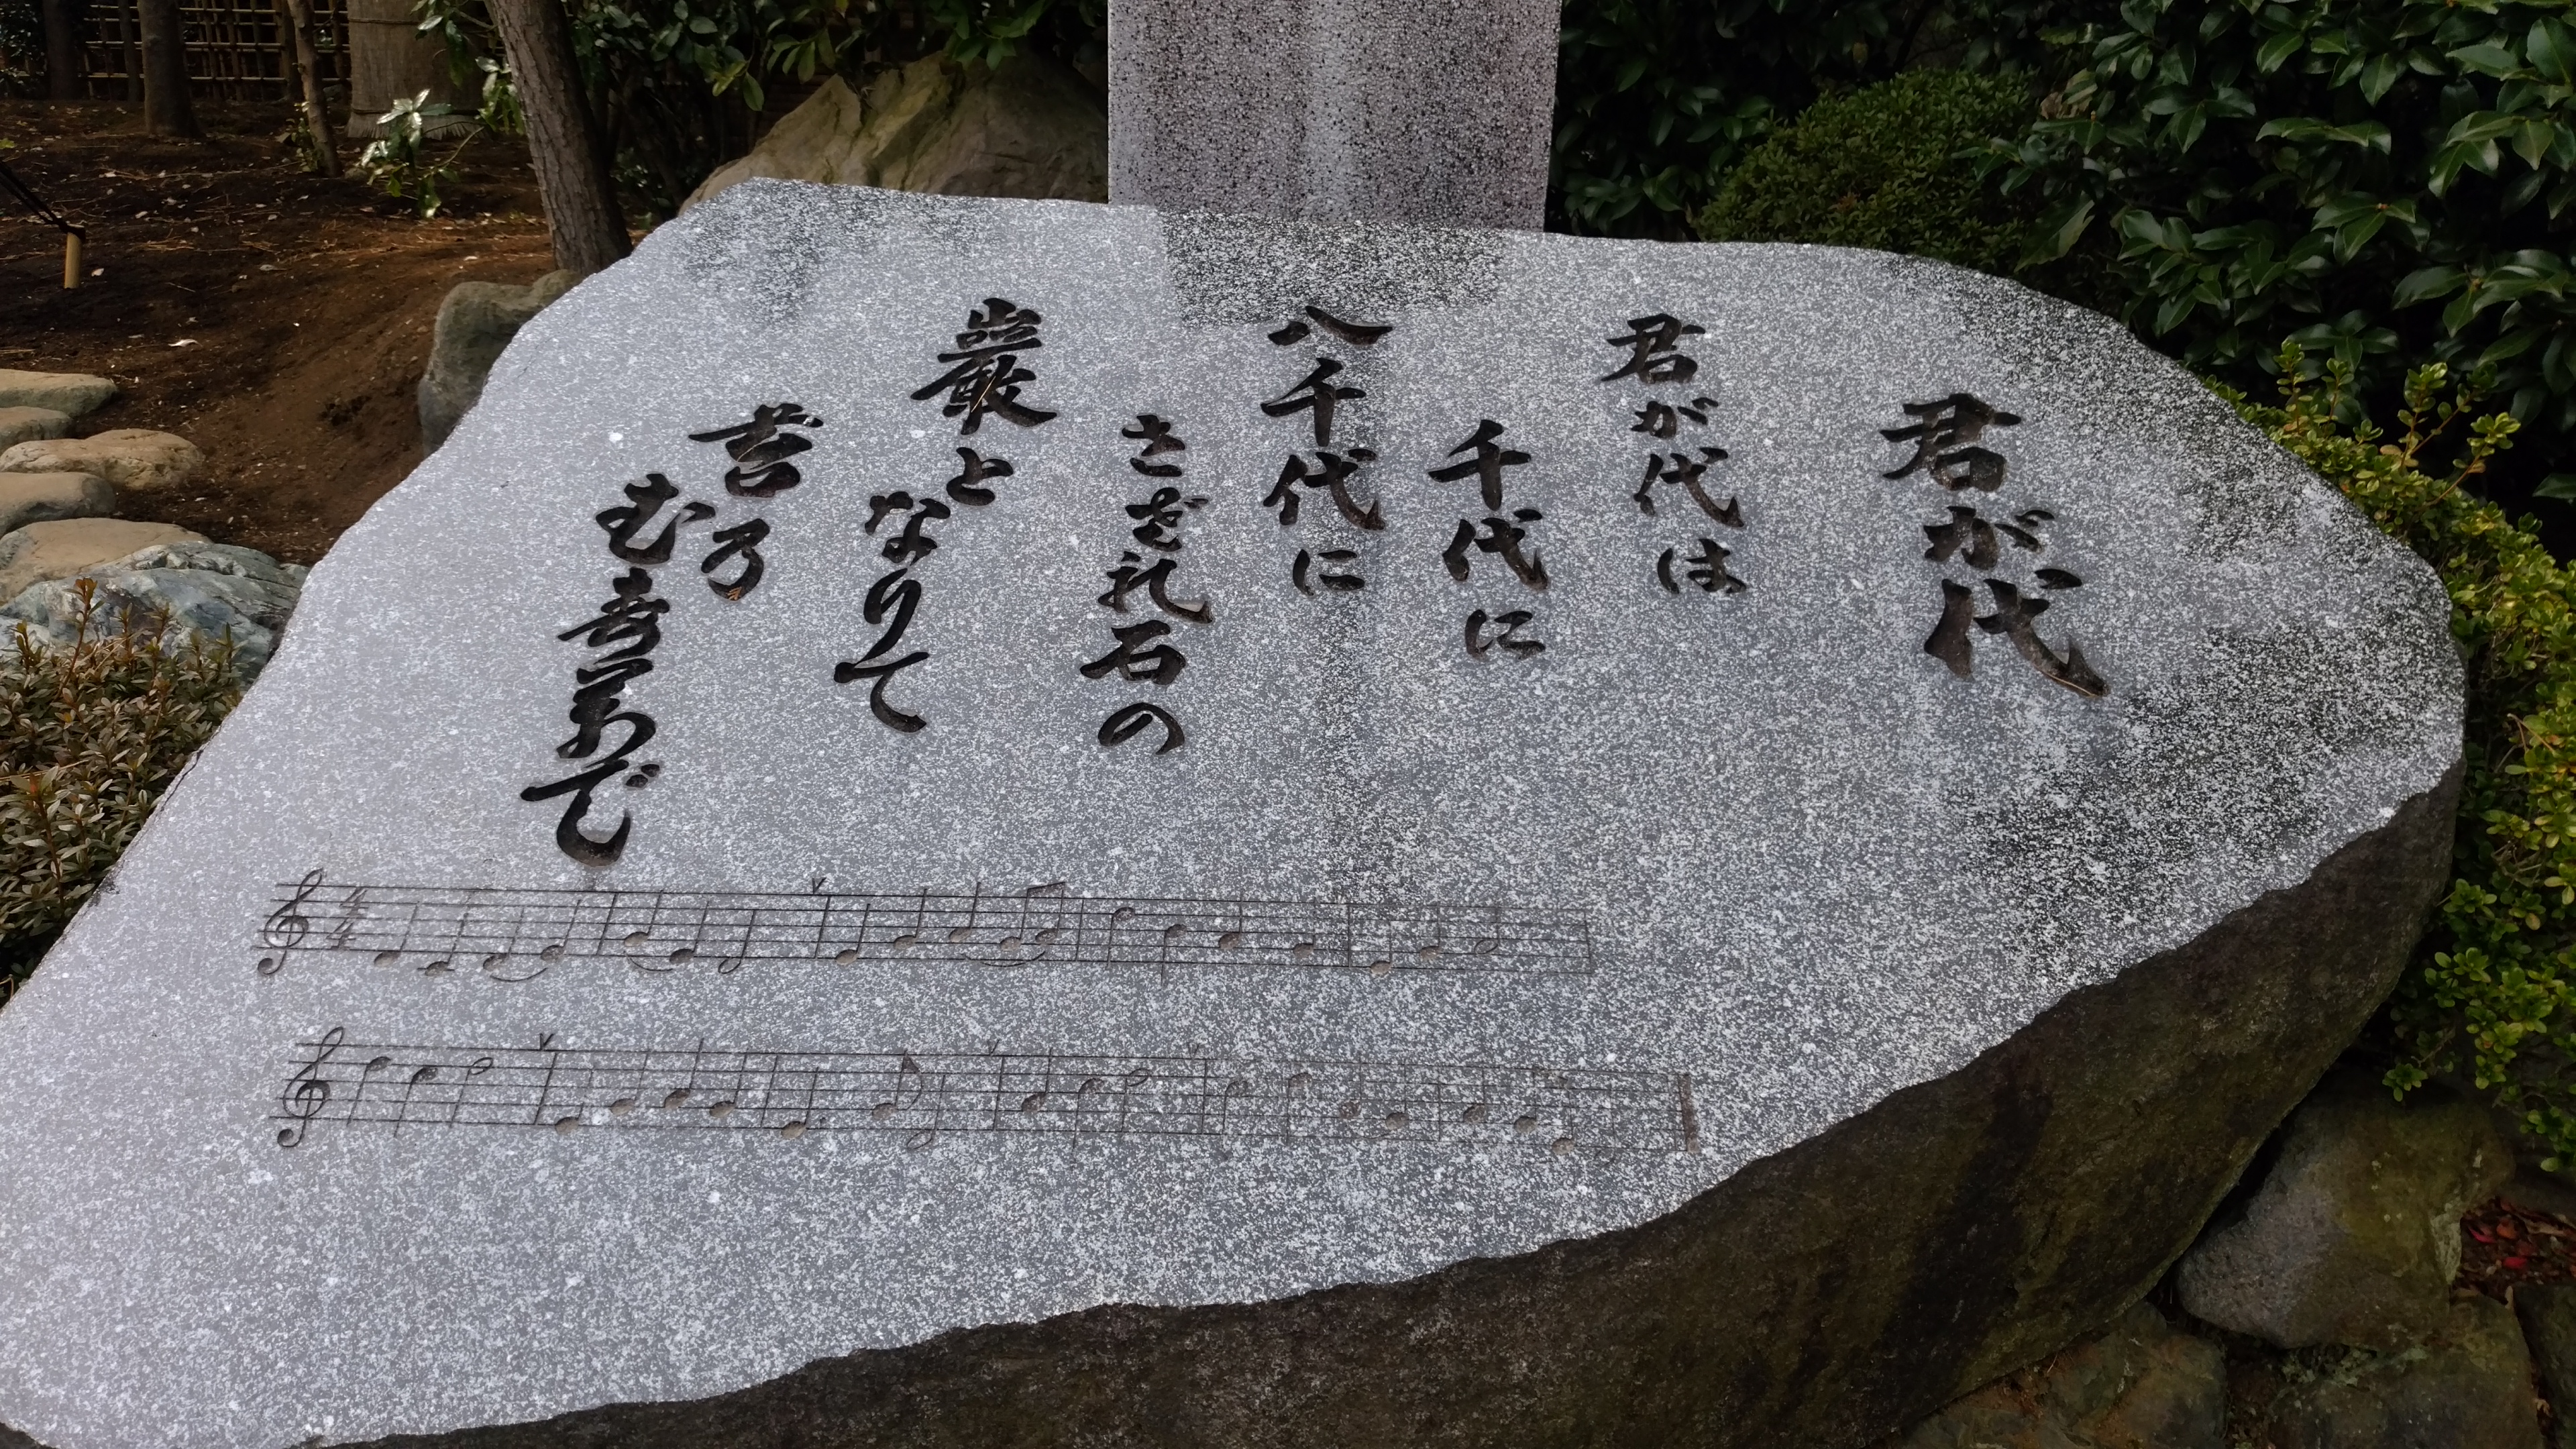 君が代
君が代は
千代に
八千代に
さざ礼石の
巌となりて
苔乃
む寿万で